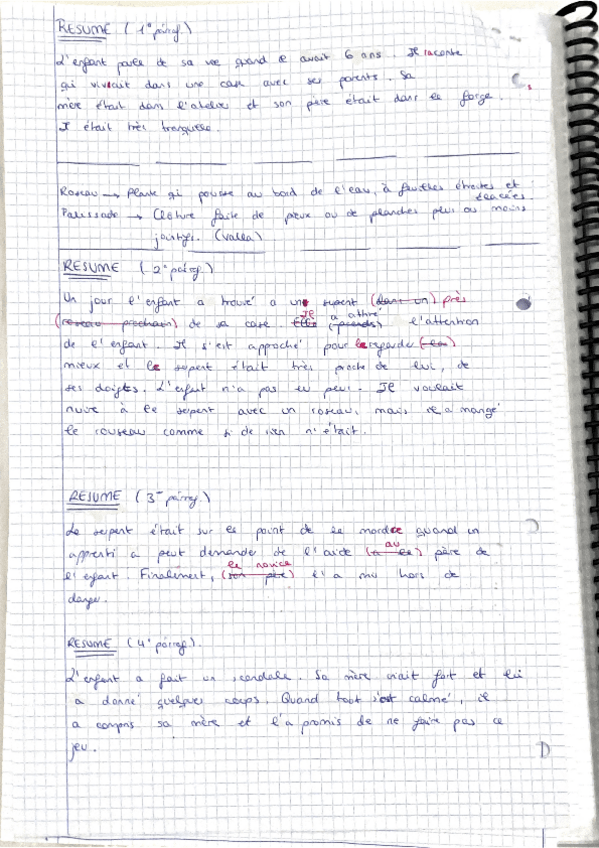 RESUME (1er parrag.)
L'enfant parle de sa vie quand il avait 6 ans. Il raconte
qi vivait dans une case avec ses parents. Sa
mère était dans l'atelier et son père était dans la forge.
Il était très tranquille.
Roseau → Plante qi pousse au bord de l'eau, à feuilles étroites et
élancées.
Palissade → Clôture faite de pieux ou de planches plus ou moins
jointifs. (Valla)
RESUME (2e párrag.)
Un jour l'enfant a trouvé a un serpent (dans un) près
(roseau prochain) de sa case. Il a attiré (prends) l'attention
de l'enfant. Il s'est approché pour le regarder
mieux et le serpent était très proche de lui, de
ses doigts. L'enfant n'a pas eu peur. Il voulait
nuire à le serpent avec un roseau, mais il a mangé
le rouseau comme si de rien n'était.
RESUME (3e párrag.)
Le serpent était sur le point de le mordre quand un
apprenti a peut demander de l'aide (a le) au père de
l'enfant. Finalement, (son père) le novice l'a mis hors de
danger.
RESUME (4e párrag).
L'enfant a fait un scandale. Sa mère criait fort et lui
a donné quelques coups. Quand tout s'est calmé, il
a compris sa mère et l'a promis de ne faire pas ce
jeu.